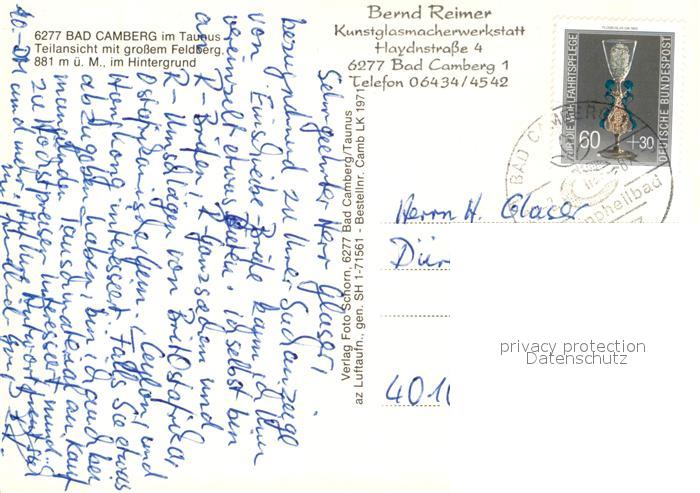 6277 BAD CAMBERG im Taunus
Teilansicht mit großem Feldberg,
881 m ü. M., im Hintergrund
Bernd Reimer
Kunstglasmacherwerkstatt
Haydnstraße 4
6277 Bad Camberg 1
Telefon 06434/4542
FÜR DIE WOHLFAHRTSPFLEGE
60 +30
DEUTSCHE BUNDESPOST
BAD CAMBERG
Kneippheilbad
Verlag Foto Schorn, 6277 Bad Camberg/Taunus
az Luftaufn., gen. SH 1-71561 - Bestellnr. Camb LK 1971
Herrn H. Glaser
Dür
4010
privacy protection
Datenschutz
Sehr geehrter Herr Glaser,
bezugnehmend zu Ihrer Suchanzeige
von Einschreibe-Briefe kann ich Ihnen
vereinzelt etwas bieten. Ich selbst bin
an R-Briefen, R-Ganzsachen und
R-Umschlägen von Brit. Ostafrika
Ostafrikanische Gem., Ceylon und
Honkong interessiert. Falls Sie etwas
abzugeben haben, bin ich auch bei
mangelnden Tauschmaterial an Kauf
zu Höchstpreisen interessiert
40.-DM und mehr